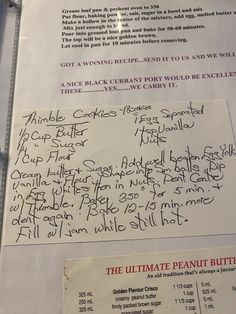 Grease loaf pan & preheat oven to 350
Put flour, baking powder, salt, sugar in a bowl and mix
Make a hollow in the center of the mixture, add egg, melted butter a
Mix just enough to
Pour into greased loaf pan and bake for 50-60 minutes.
The top will be a nice golden brown.
Let cool in pan for 10 minutes before removing.
GOT A WINNING RECIPE...SEND IT TO US AND WE WILL
A NICE BLACK CURRANT PORT WOULD BE EXCELLE
THESE YES WE CARRY IT.
Thimble Cookies
1/2 Cup Butter 1 Egg Separated
1/4 " Sugar 1 tsp Vanilla
1 Cup Flour Nuts
Cream butter & Sugar. Add well beaten Egg Yolk
Vanilla & Flour. Shape into Sm balls Dip
in Egg Whites then in Nuts. Dent Center
w/ thimble. Bake 350° for 5 min. &
dent again. Bake 12-15 min. more
Fill w/ jam while still hot.
THE ULTIMATE PEANUT BUTTE
An old tradition that's always a favour
325 mL Golden Flavour Crisco 1 1/3 cups 5 mL
250 mL creamy peanut butter 1 cup 625 mL
325 mL firmly packed brown sugar 1 1/3 cups 5 mL